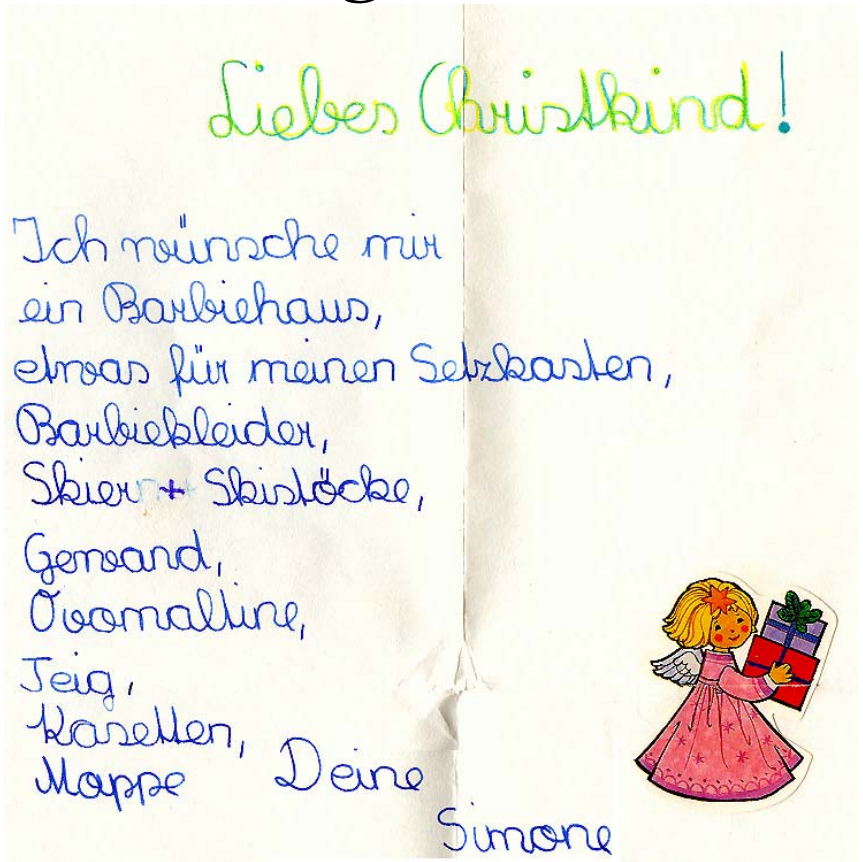 Liebes Christkind!
Ich wünsche mir
ein Barbiehaus,
etwas für meinen Setzkasten,
Barbiekleider,
Skier + Skistöcke,
Gewand,
Ovomaltine,
Teig,
Kasetten,
Mappe Deine
Simone